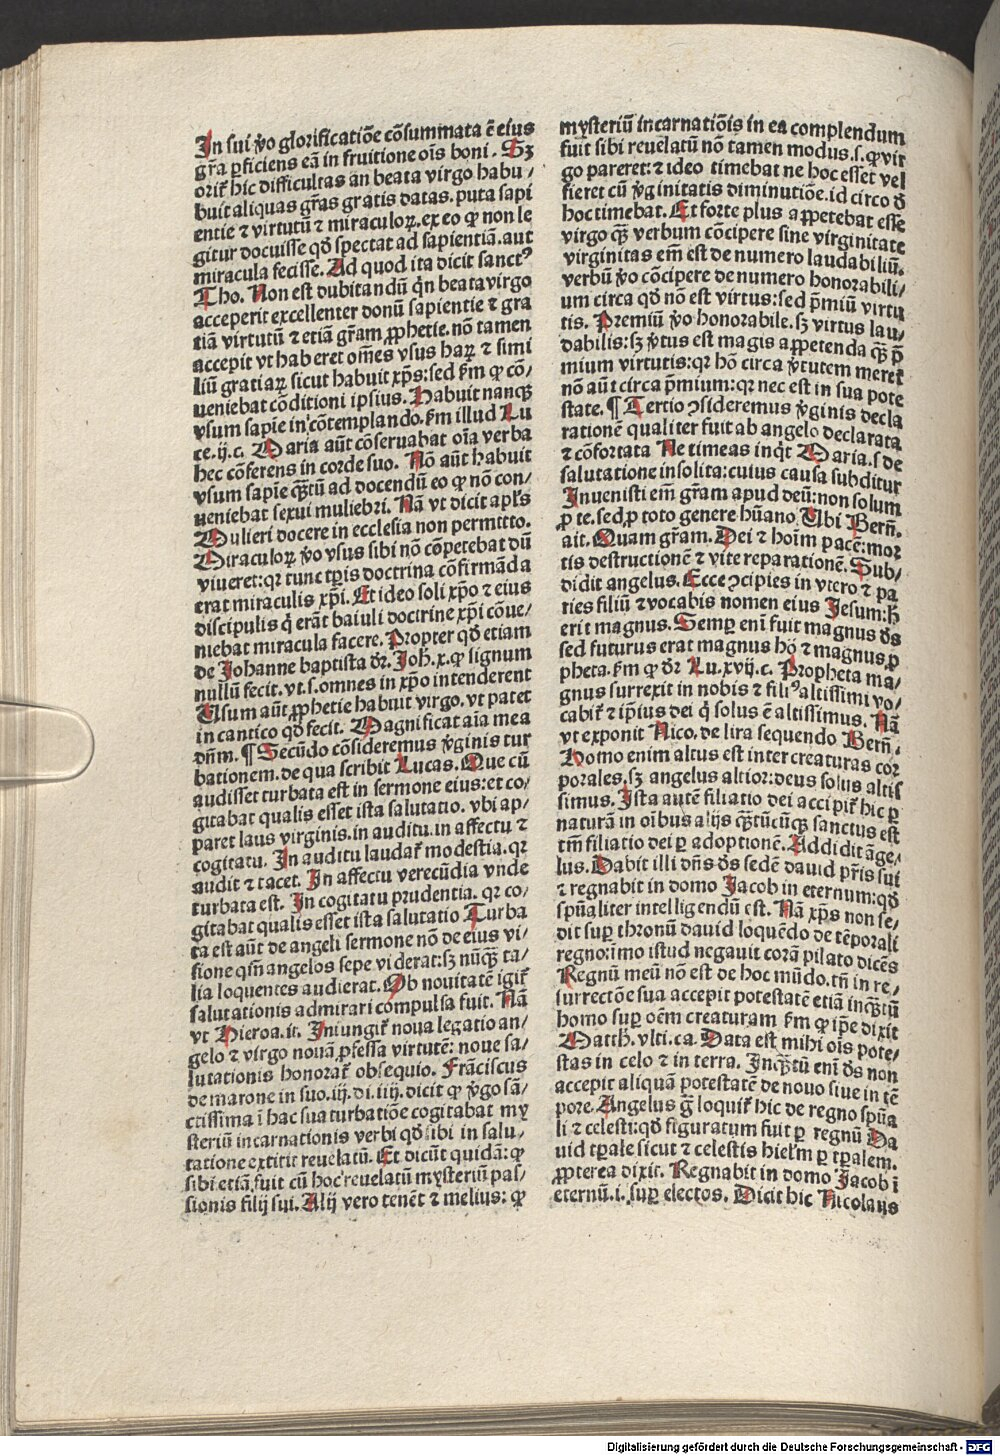 In sui ỽo glorificatiōe cōsummata ē eius
grā ꝑficiens eā in fruitione oīs boni. Sꝫ
orit᷑ hic difficultas an beata virgo habu⸗
buit aliquas grās gratis datas. puta sapi
entie ⁊ virtutū ⁊ miraculoꝝ. ex eo ꝙ non le
gitur docuisse qď spectat ad sapientiā. aut
miracula fecisse. Ad quod ita dicit sanctꝰ
Tho. Non est dubitandū qͥn beata virgo
acceperit excellenter donū sapientie ⁊ gra
tiā virtutū ⁊ etiā grām ꝓphetie. nō tamen
accepit vt haberet om̄es vsus haꝝ ⁊ simi
liū gratiaꝝ sicut habuit xp̄s: sed ẜm ꝙ cō⸗
ueniebat cōditioni ipsius. Habuit nanqꝫ
vsum sapīe in cōtemplando. ẜm illud Lu
ce. ij. c. Maria aūt cōseruabat oīa verba
hec cōferens in corde suo. Nō aūt habuit
vsum sapīe qꝫtū ad docendū eo ꝙ nō con⸗
ueniebat sexui muliebri. Nā vt dicit apl̄s
Mulieri docere in ecclesia non permitto.
Miraculoꝝ ỽo vsus sibi nō cōpetebat dū
viueret: qꝛ tunc tꝑis doctrina cōfirmāda
erat miraculis xp̄i. Et ideo soli xp̄o ⁊ eius
discipulis q̇ erāt baiuli doctrine xp̄i cōue⸗
niebat miracula facere. Propter qď etiam
de Johanne baptista dr̄. Joh̄. x. ꝙ signum
nullū fecit. vt. s. omnes in xp̄o intenderent
Usum aūt ꝓphetie habuit virgo. vt patet
in cantico qď fecit. Magnificat aīa mea
dn̄m. ¶ Secūdo cōsideremus ỽginis tur
bationem. de qua scribit Lucas. Que cū
audisset turbata est in sermone eius: et co⸗
gitabat qualis esset ista salutatio. vbi ap⸗
paret laus virginis. in auditu. in affectu ⁊
cogitatu. In auditu laudat᷑ modestia. qꝛ
audit ⁊ tacet. In affectu verecūdia vnde
turbata est. In cogitatu prudentia. qꝛ co⸗
gitabat qualis esset ista salutatio Turba
ta est aūt de angeli sermone nō de eius vi⸗
sione qm̄ angelos sepe viderat: sꝫ nūqꝫ ta⸗
lia loquentes audierat. Ob nouitatē igit᷑
salutationis admirari compulsa fuit. Nā
vt Hieroa. it. Iniungit᷑ noua legatio an⸗
gelo ⁊ virgo nouā ꝓfessa virtutē: noue sa⸗
lutationis honorat᷑ obsequio. Frāciscus
de marone in suo. iij. di. iiij. dicit ꝙ ỽgo sā⸗
ctissima ī hac sua turbatiōe cogitabat my
steriū incarnationis verbi qď sibi in salu⸗
tatione extitit reuelatū. Et dicūt quidā: ꝙ
sibi etiā fuit cū hoc reuelatū mysteriū pas⸗
sionis filij sui. Alij vero tenēt ⁊ melius: ꝙ
mysteriū incarnatiōis in ea complendum
fuit sibi reuelatū nō tamen modus. s. ꝙ vir
go pareret: ⁊ ideo timebat ne hoc esset vel
fieret cū ỽginitatis diminutiōe. id circo ď
hoc timebat. Et forte plus appetebat esse
virgo qꝫ verbum cōcipere sine virginitate
virginitas em̄ est de numero laudabiliū.
verbū ỽo cōcipere de numero honorabili⸗
um circa qď nō est virtus: sed p̄miū virtu
tis. Premiū ỽo honorabile. sꝫ virtus lau⸗
dabilis: sꝫ ỽtus est magis appetenda qꝫ p̄
mium virtutis: qꝛ hō circa ỽtutem meret᷑
nō aūt circa p̄mium: qꝛ nec est in sua pote
state. ¶ Tertio ꝯsideremus ỽginis decla
rationē qualiter fuit ab angelo declarata
⁊ cōfortata Ne timeas inqͥt Maria. s de
salutatione insolita: cuius causa subditur
Inuenisti em̄ grām apud deū: non solum
ꝓ te. sed ꝓ toto genere hūano Ubi Bern̄.
ait. Quam grām. Dei ⁊ hoīm pacē: mor
tis destructionē ⁊ vite reparationē. Sub⸗
didit angelus. Ecce ꝯcipies in vtero ⁊ pa
ries filiū ⁊ vocabis nomen eius Jesum: ħ
erit magnus. Semꝑ eni fuit magnus ďs
sed futurus erat magnus hō ⁊ magnus ꝓ
pheta. ẜm ꝙ dr̄ Lu. xvij. c. Propheta ma⸗
gnus surrexit in nobis ⁊ filiꝰ altissimi vo⸗
cabit᷑ ⁊ ip̄ius dei q̇ solus ē altissimus. Nā
vt exponit Nico. de lira sequendo Bern̄.
Homo enim altus est inter creaturas cor
porales. sꝫ angelus altior: deus solus altis
simus. Ista autē filiatio dei accipit᷑ hic ꝑ
naturā in oībus alijs qꝫtūcūqꝫ sanctus est
tm̄ filiatio dei ꝑ adoptionē. Addidit āge⸗
lus. Dabit illi dn̄s ďs sedē dauid pr̄is sui
⁊ regnabit in domo Jacob in eternum: qď
spūaliter intelligendū est. Nā xp̄s non se⸗
dit suꝑ thronū dauid loquēdo de tēporali
regno: īmo istud negauit corā pilato dicēs
Regnū meū nō est de hoc mūdo. tn̄ in re⸗
surrectōe sua accepit potestatē etiā inqꝫtū
homo suꝑ oēm creaturam ẜm ꝙ ip̄e dixit
Matth. vlti. ca. Data est mihi oīs pote⸗
stas in celo ⁊ in terra. Inqꝫtū enī ďs non
accepit aliquā potestatē de nouo siue in tē
pore. Angelus ḡ loquit᷑ hic de regno spūa
li ⁊ celesti: qď figuratum fuit ꝑ regnū Da
uid tꝑale sicut ⁊ celestis hierl̄m ꝑ tꝑalem.
ꝓpterea dixit. Regnabit in domo Jacob ī
eternū. i. suꝑ electos. Dicit hic Nicolaus
Digitalisierung gefördert durch die Deutsche Forschungsgemeinschaft - DFG